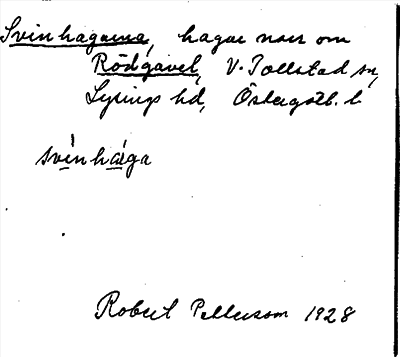 Svinhagarna, hagar norr om
Rödgavel, V. Tollstad sn,
Lysings hd, Östergötl. l
svinhaga
Robert Pettersson 1928